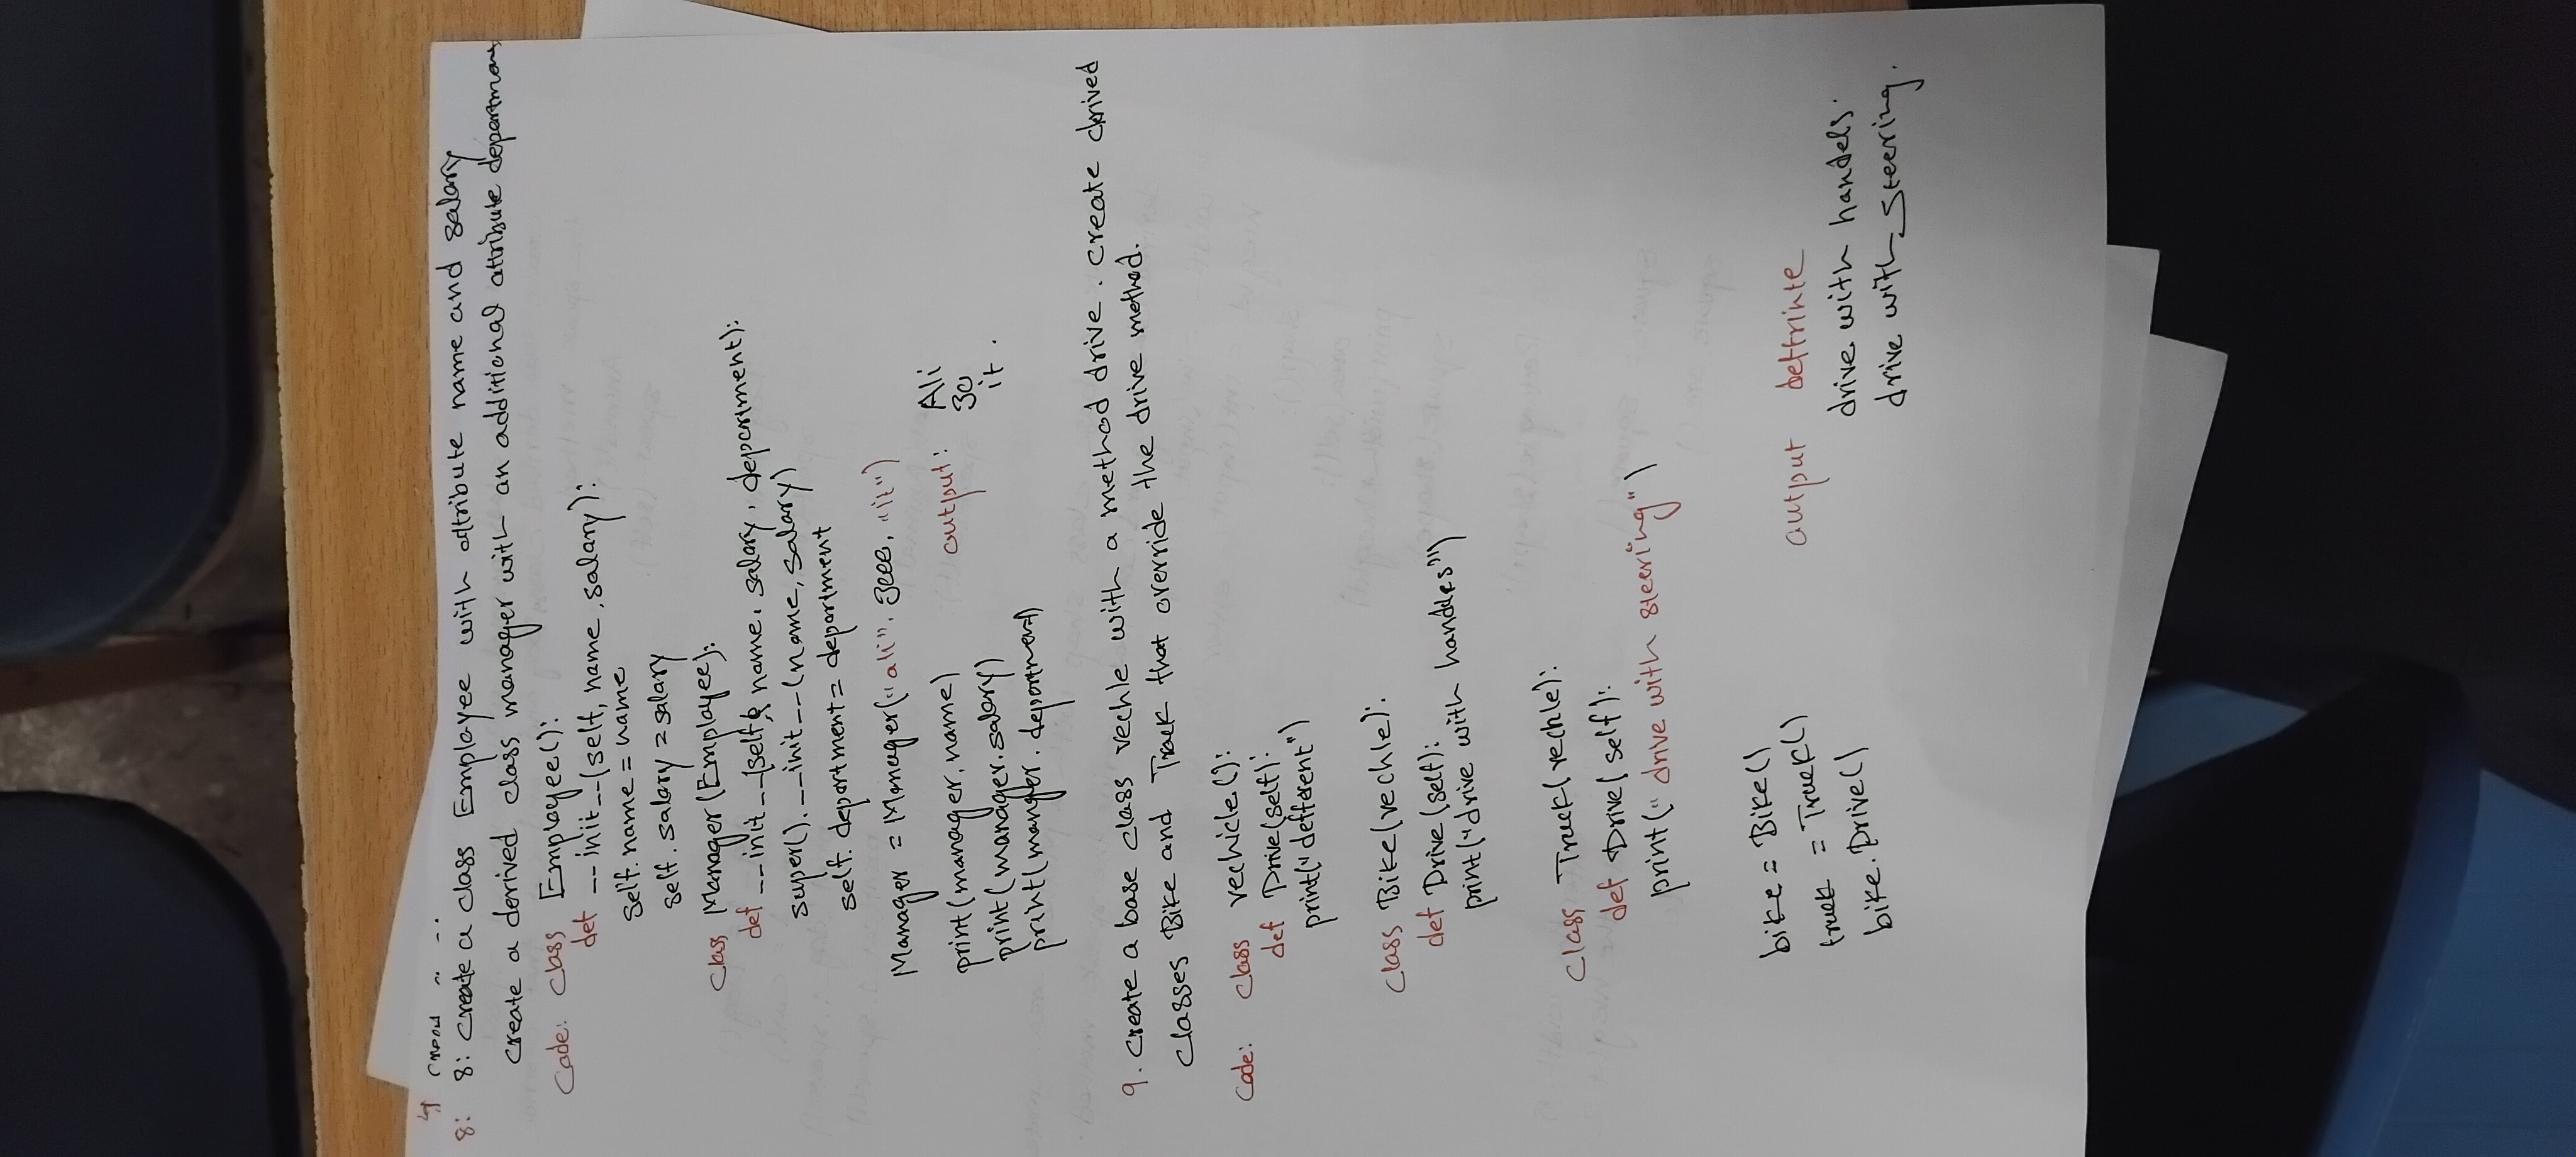 8: 8: create a class Employee with attribute name and salary
create a derived class manager with an additional attribute department
Code: class Employee():
def __init__(self, name, salary):
self.name = name
self.salary = salary
class Manager(Employee):
def __init__(self, name, salary, department):
super().__init__(name, salary)
self.department = department
Manager = Manager("ali", 3000, "it")
print(manager.name)
print(manager.salary)
print(manger.department)
output: Ali
30
it.
9. Create a base class vechle with a method drive. create drived
classes Bike and Track that override the drive method.
Code: class vechicle():
def Drive(self):
print("defferent")
class Bike(vechle):
def Drive(self):
print("drive with handdes")
class Truck(vechle):
def Drive(self):
print("drive with steering")
bike = Bike()
truck = Truck()
bike.Drive()
output deffrinte
drive with handels.
drive with steering.